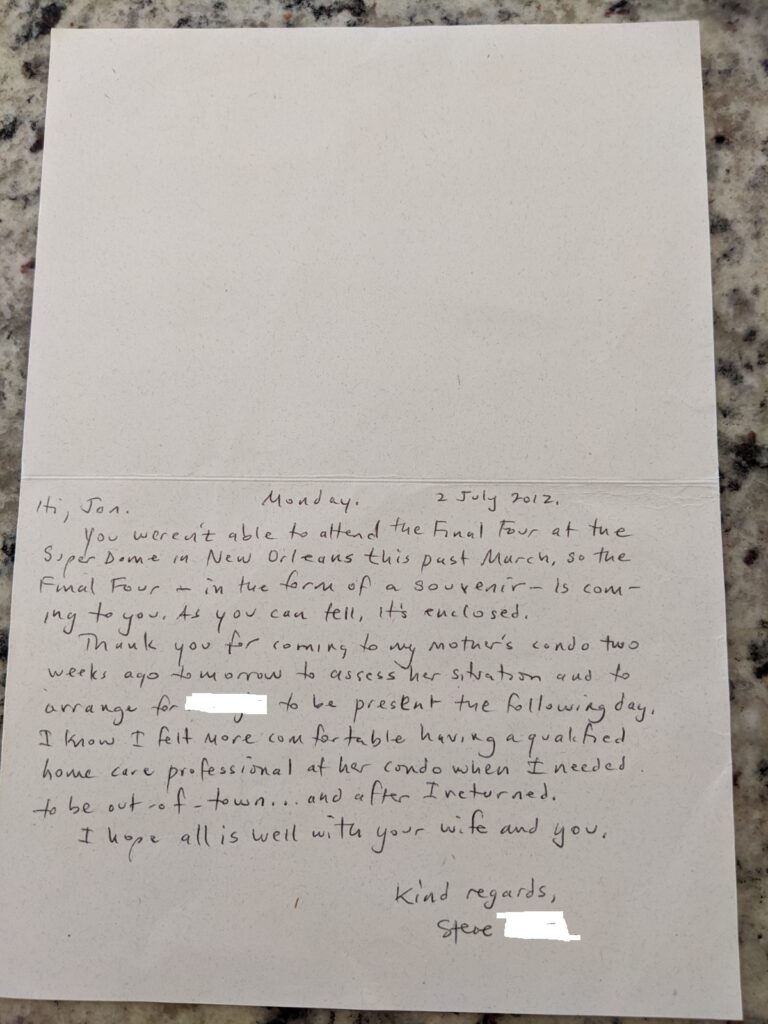 Hi, Jon. Monday. 2 July 2012.
You weren't able to attend the Final Four at the
Super Dome in New Orleans this past March, so the
Final Four – in the form of a souvenir – is com-
ing to you. As you can tell, it's enclosed.
Thank you for coming to my mother's condo two
weeks ago tomorrow to assess her situation and to
arrange for to be present the following day.
I know I felt more comfortable having a qualified
home care professional at her condo when I needed
to be out-of-town... and after I returned.
I hope all is well with your wife and you.
Kind regards,
Steve